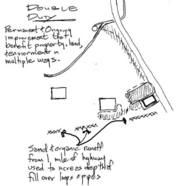 DOUBLE
DUTY
Permanent & Ongoing
improvement that
benefit property, land,
environment in
multiple ways.
Sand & organic runoff
from 1 mile of highway
used to increase depth of
fill over logs &